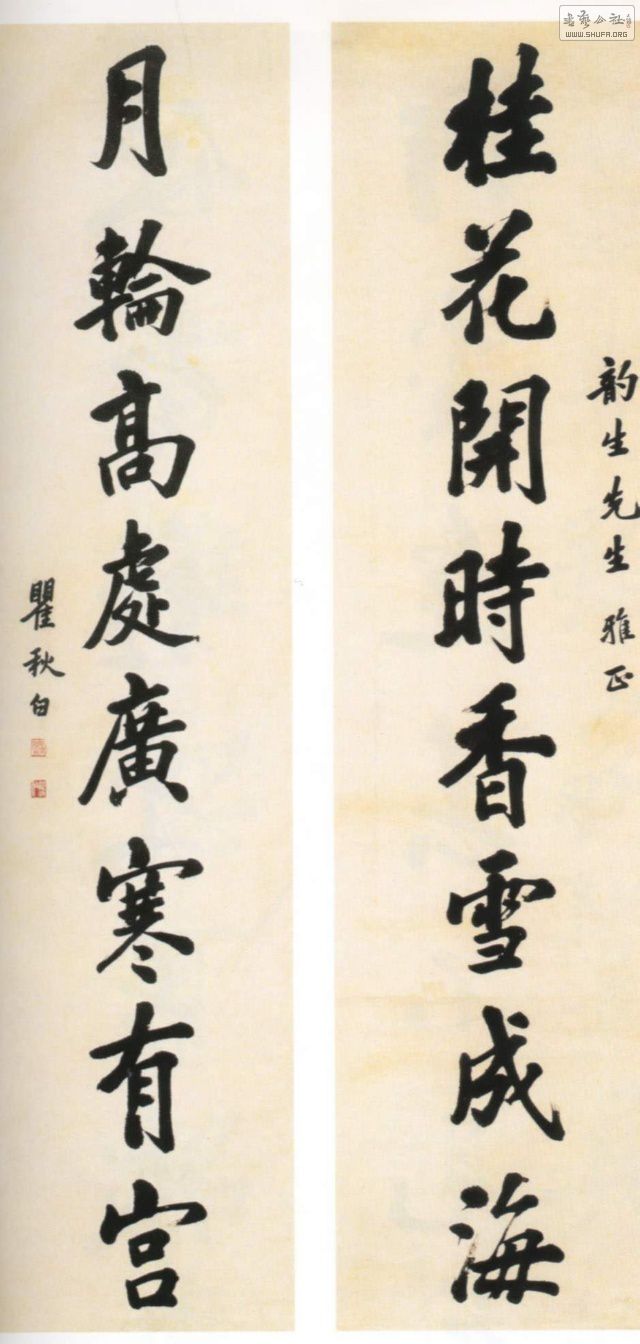 韵生先生雅正
桂花開時香雪成海
月輪高處廣寒有宫
瞿秋白
书艺公社
WWW.SHUFA.ORG